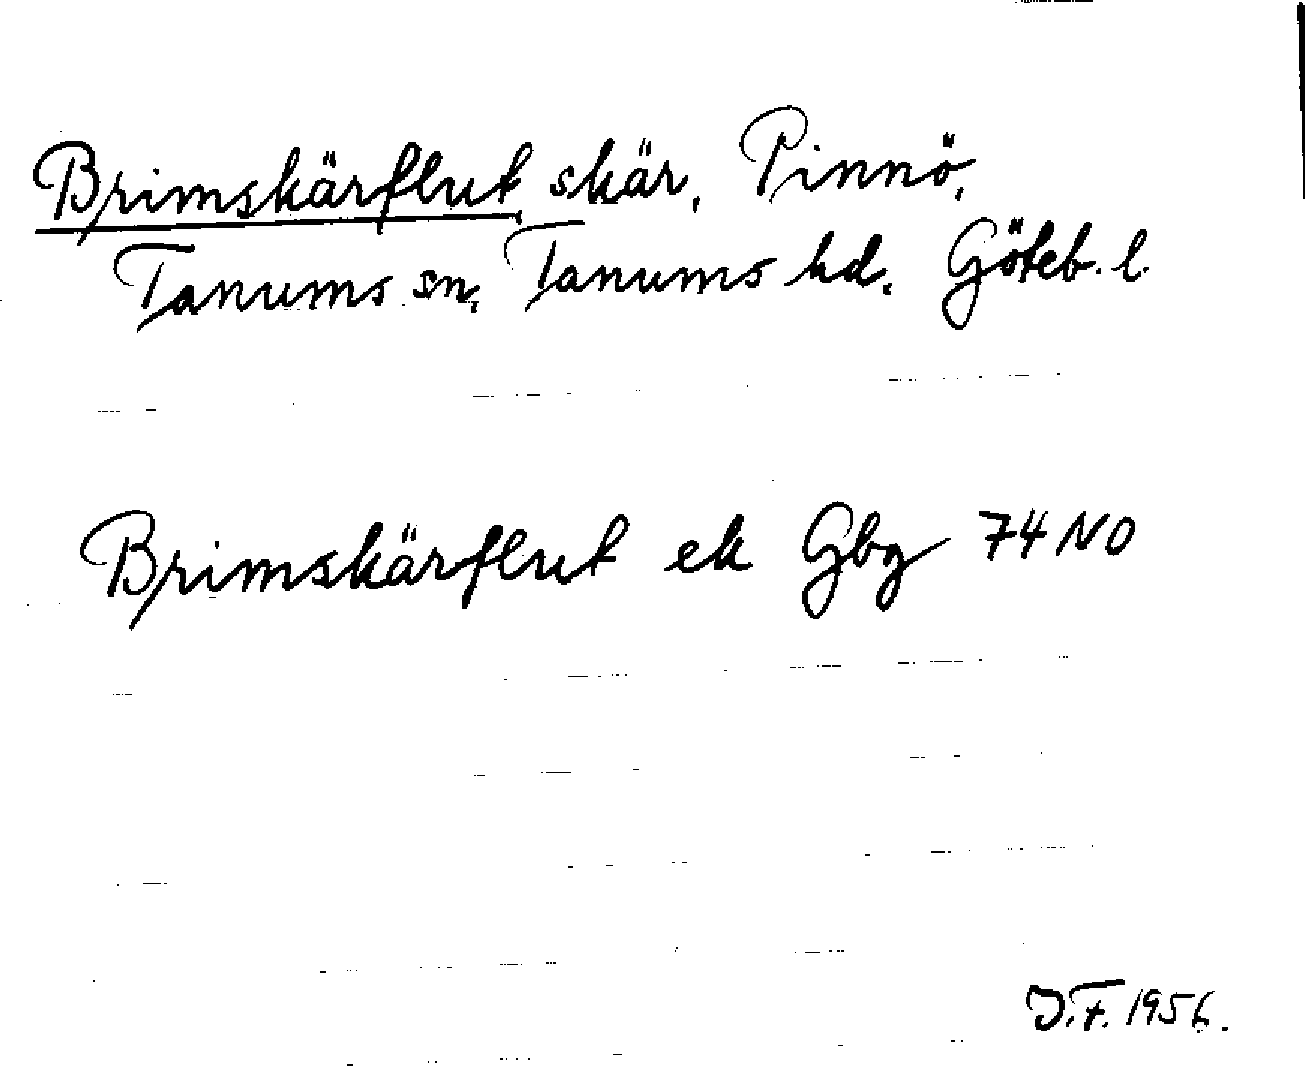 Brimskärflut skär, Pinnö,
Tanums sn, Tanums hd. Göteb. l.
Brimskärflut ek Gbg 74 NO
J.F. 1956.